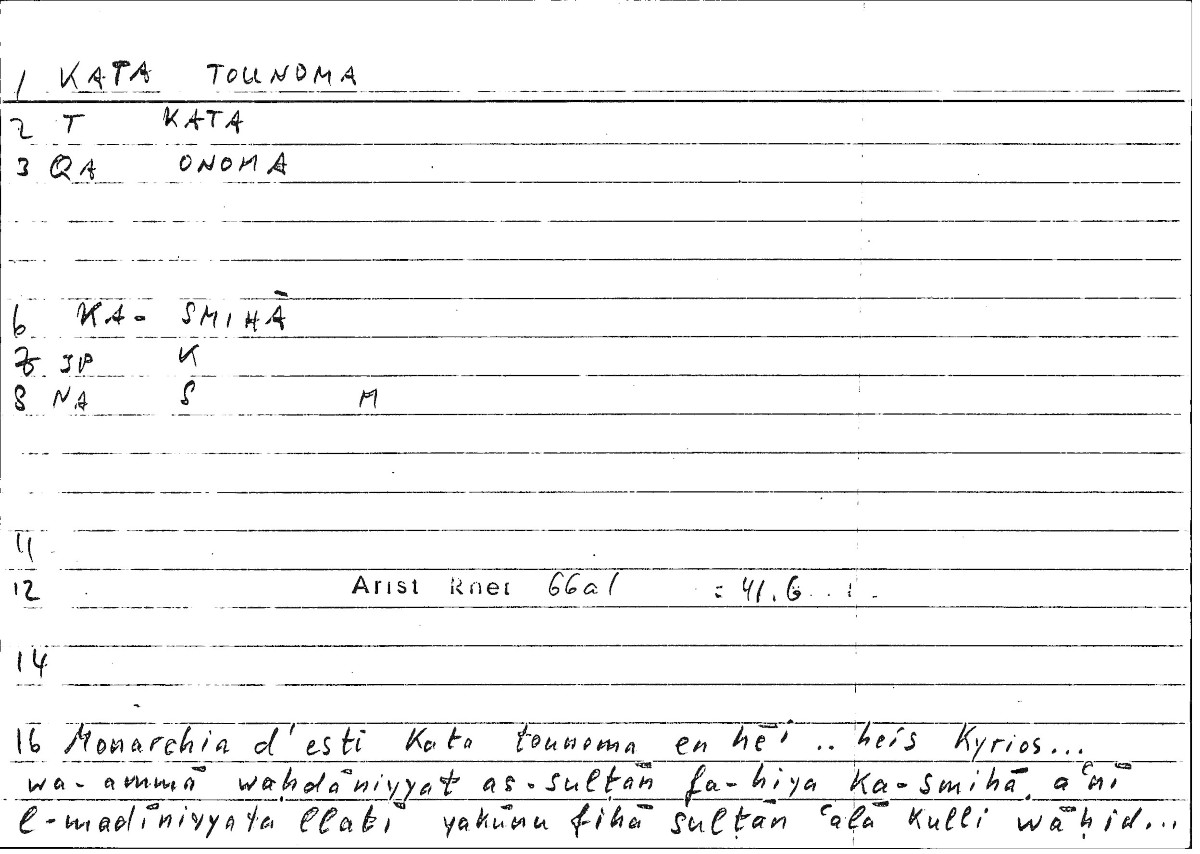 1 KATA TOUNOMA
2 T KATA
3 QA ONOMA
6 KA- SMIHĀ
7 JP K
8 NA S M
11
12 Arist Rhet 66a1 : 41.6
14
16 Monarchia d'esti kata tounoma en hēi .. heis kyrios...
wa-ammā waḥdāniyyat as-sulṭān fa-hiya ka-smihā, aʿnī
l-madīniyyata llatī yakūnu fīhā sulṭān ʿalā kulli wāḥid...